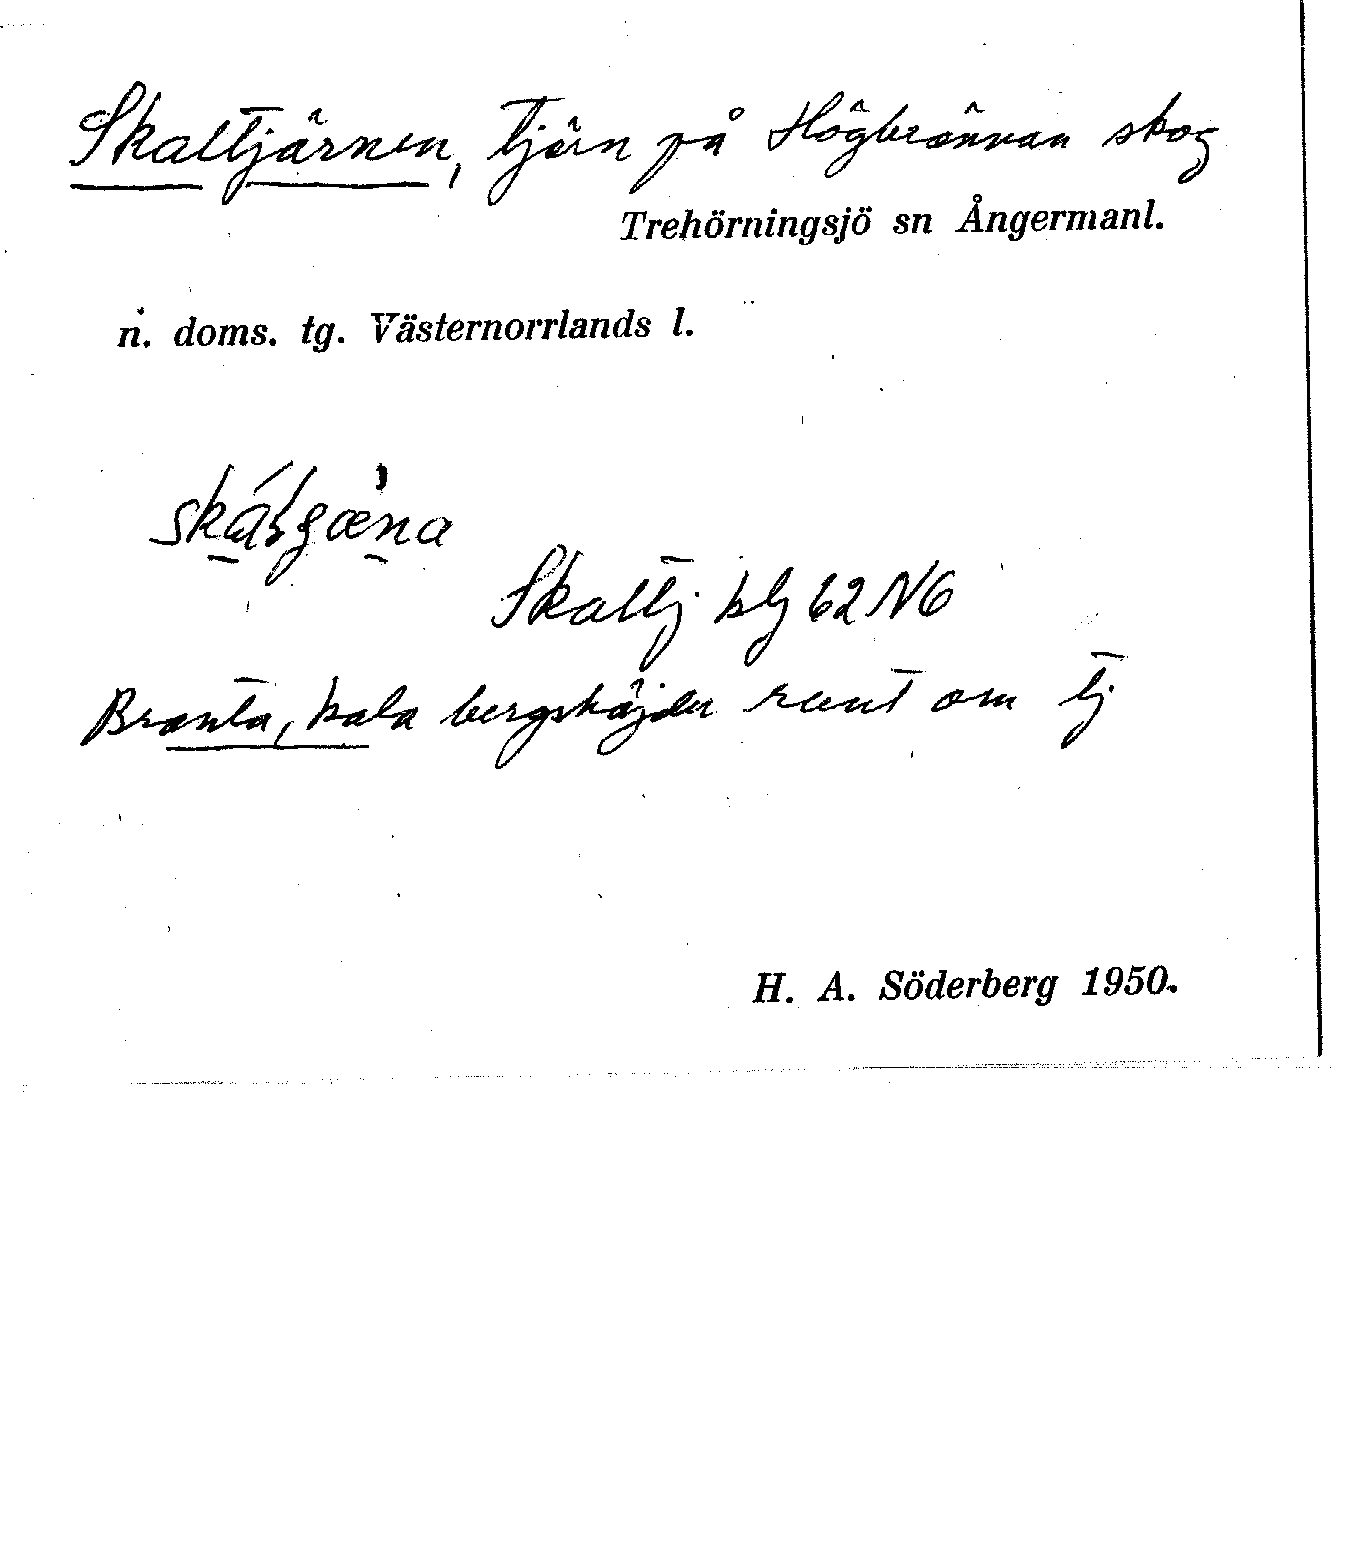 Skaltjärnen, tjärn på Högbrännan skog
Trehörningsjö sn Ångermanl.
n. doms. tg. Västernorrlands l.
Skaltj kbj 62 NO
Branta, kala bergshöjder runt om tj
H. A. Söderberg 1950.